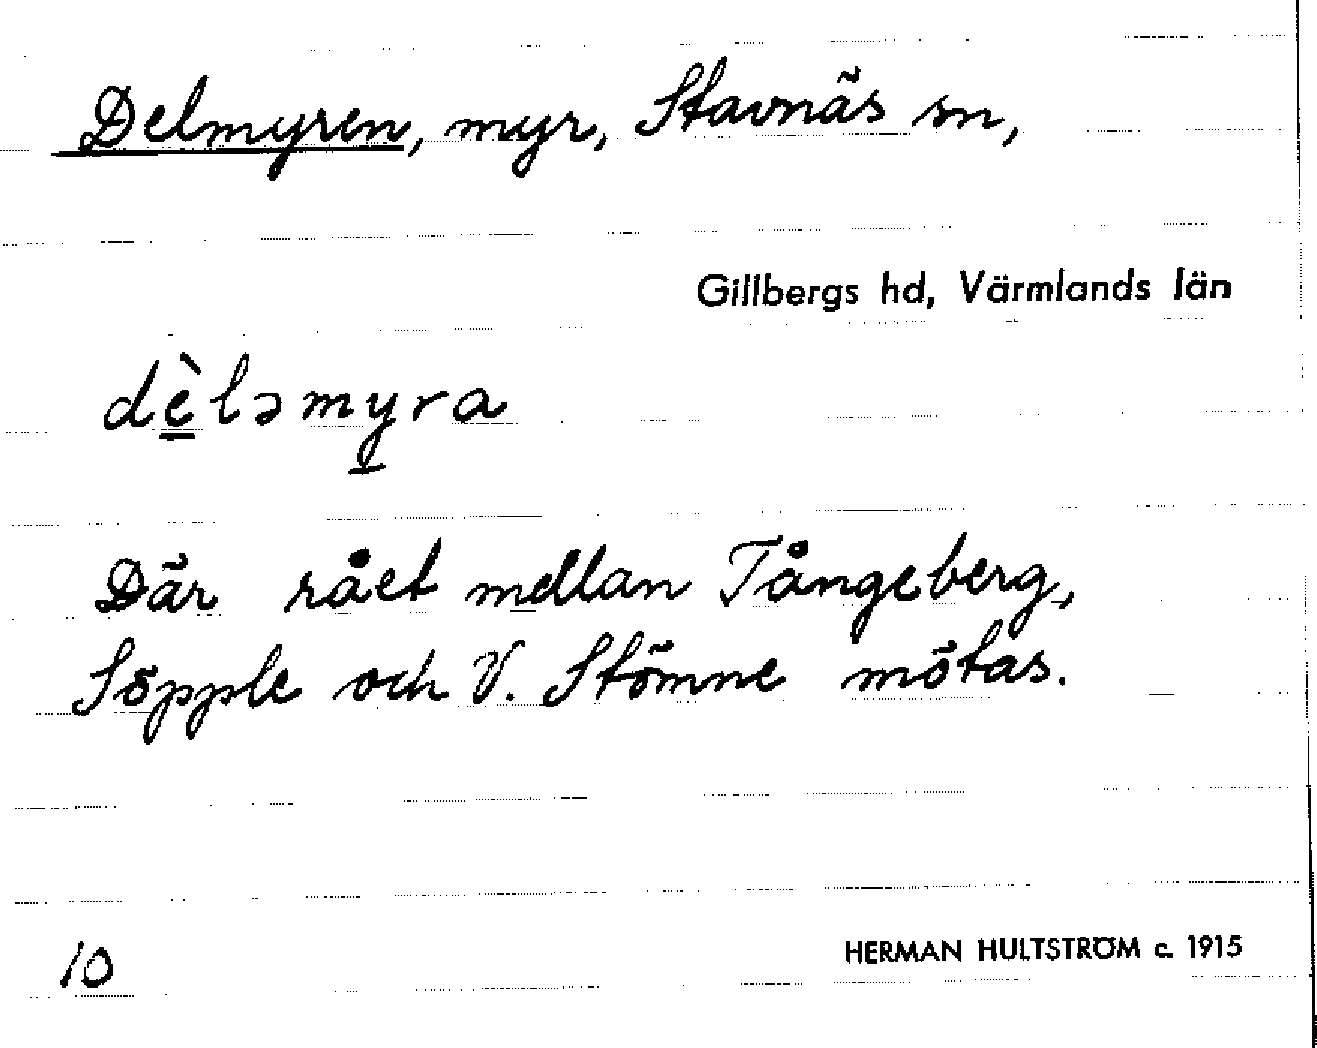 Delmyren, myr, Stavnäs sn,
Gillbergs hd, Värmlands län
dè̲ləmy̲ra
Där rået mellan Tångeberg,
Söpple och V. Stömne mötas.
10
HERMAN HULTSTRÖM c. 1915